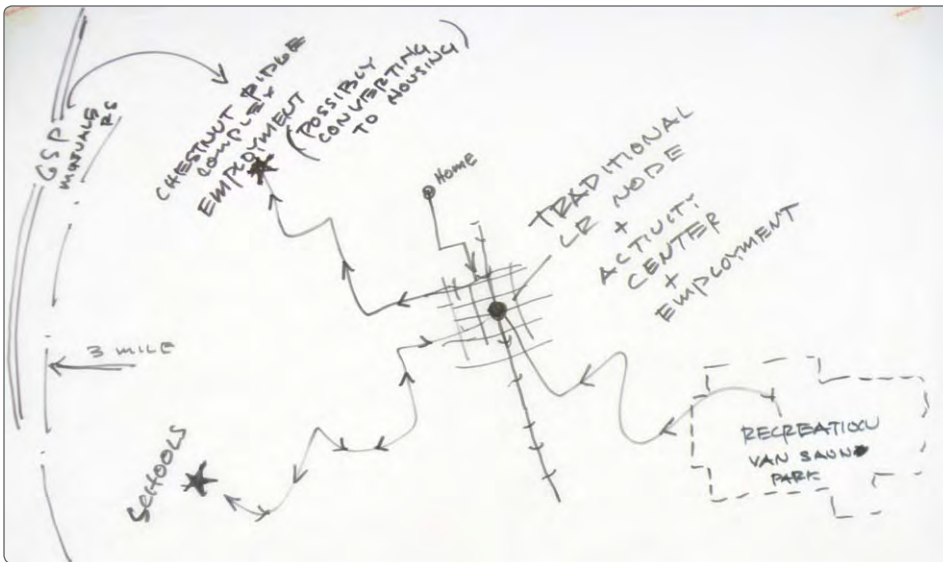 GSP
CHESTNUT RIDGE
COMPLEX
EMPLOYMENT
(POSSIBLY
CONVERTING
TO HOUSING)
HOME
TRADITIONAL
LR NODE
+
ACTIVITY
CENTER
+
EMPLOYMENT
3 MILE
SCHOOLS
RECREATION
VAN SAUN
PARK